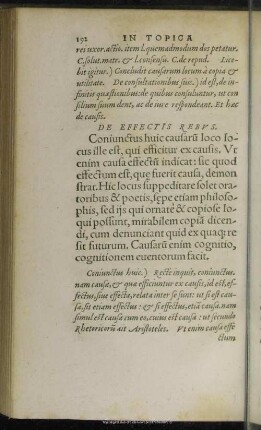 192 IN TOPICA
rei uxor. actio. item l. quemadmodum des petatur.
C. solut. matr. & l. consensu. C. de repud. Lice-
bit igitur.) Concludit causarum locum à copia &
utilitate. De consultationibus siue.) id est, de in-
finitis quæstionibus: de quibus consuluntur, ut con
silium suum dent, ac de iure respondeant. Et hæc
de causis.
DE EFFECTIS REBVS.
Coniunctus huic causarũ loco lo-
cus ille est, qui efficitur ex causis. Vt
enim causa effectũ indicat: sic quod
effectum est, quę fuerit causa, demon
strat. Hic locus suppeditare solet ora-
toribus & poetis, sępe etiam philoso-
phis, sed ijs qui ornatè & copiose lo-
qui possunt, mirabilem copiã dicen-
di, cum denunciant quid ex quaqꝫ re
sit futurum. Causarũ enim cognitio,
cognitionem euentorum facit.
Coniunctus huic.) Rectè inquit, coniunctus.
nam causa, & quæ efficiuntur ex causis, id est, ef-
fectus, siue effecta, relata inter se sunt: ut si est cau-
sa, sit etiam effectus: & si effectus, etiã causa. nam
simul est causa cum eo, cuius est causa: ut secundo
Rhetoricorũ ait Aristoteles. Vt enim causa effe
ctum